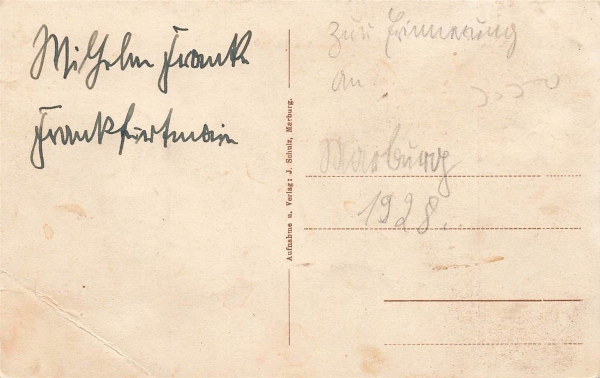 Wilhelm Frank
Frankfurtmain
Aufnahme u. Verlag: J. Schulz, Marburg.
Zur Erinnerung
an
Marburg
1928.